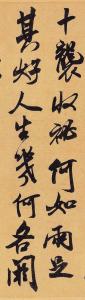 十襲收秘何如兩足
其好人生幾何各闕